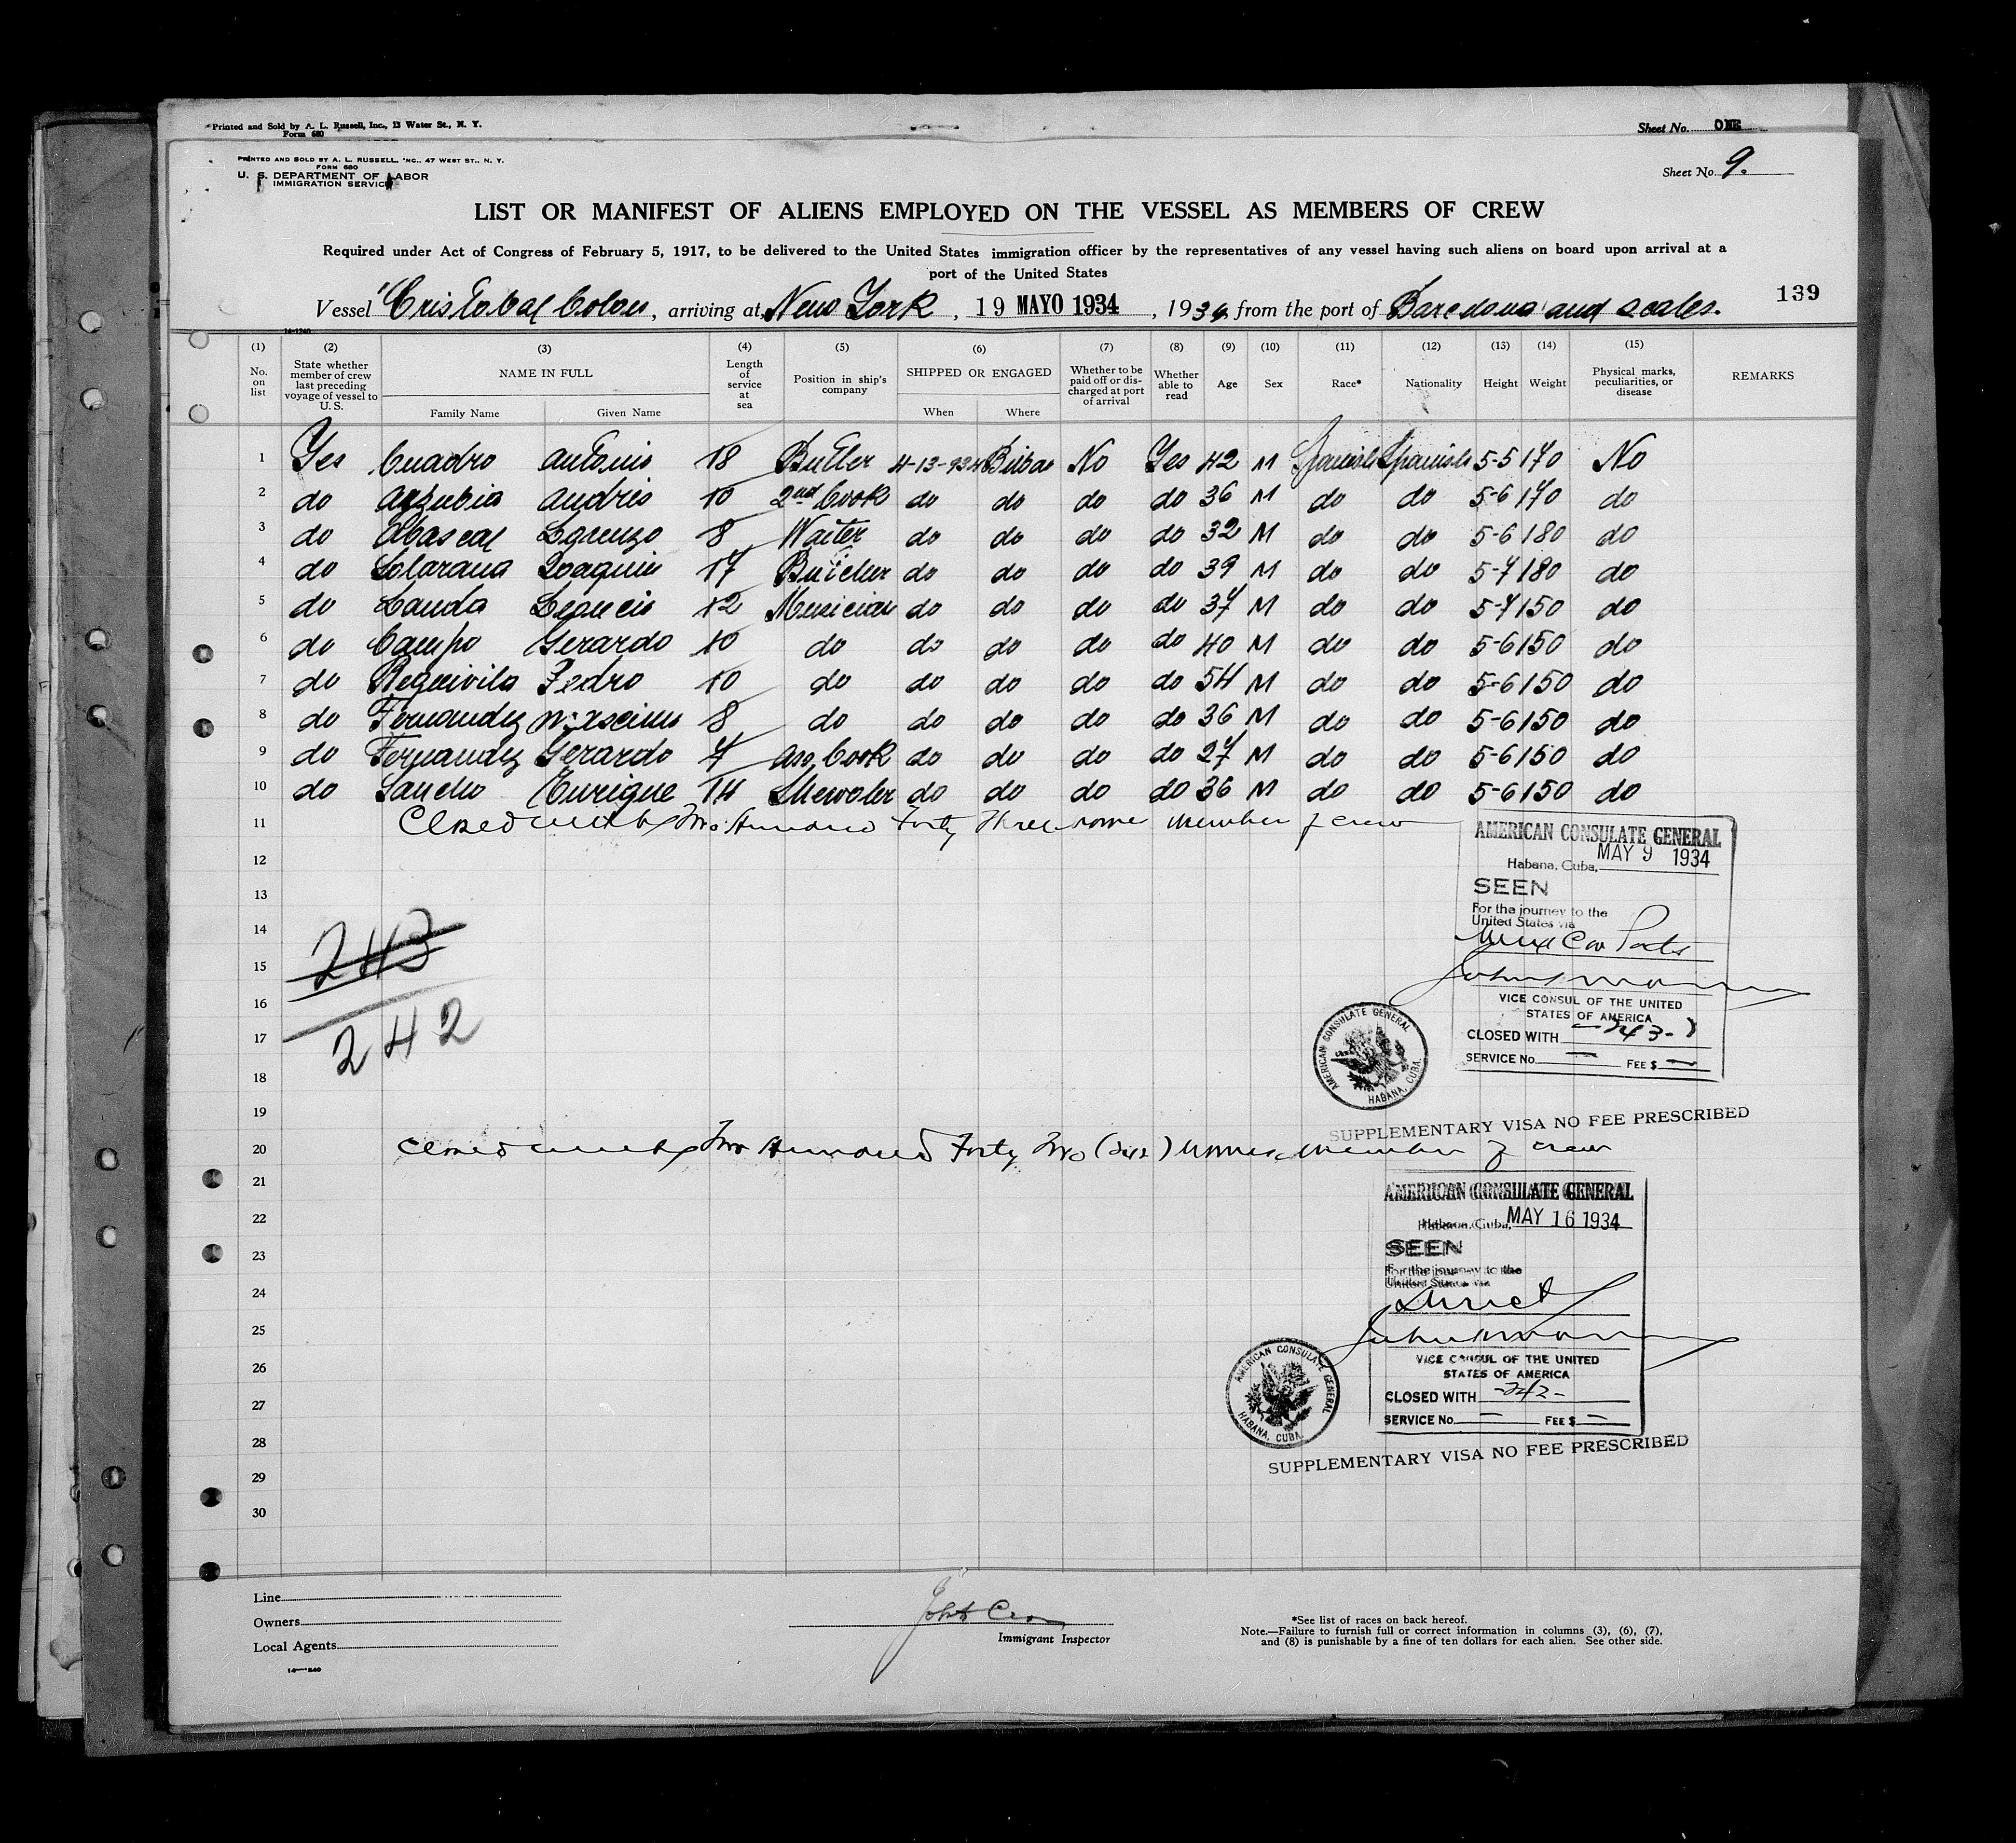 Printed and Sold by A. L. Russell, Inc., 13 Water St., N. Y.
Form 680
Sheet No. ONE
PRINTED AND SOLD BY A. L. RUSSELL, INC., 47 WEST ST., N. Y.
FORM 680
U. S. DEPARTMENT OF LABOR
IMMIGRATION SERVICE
Sheet No. 9.
LIST OR MANIFEST OF ALIENS EMPLOYED ON THE VESSEL AS MEMBERS OF CREW
Required under Act of Congress of February 5, 1917, to be delivered to the United States immigration officer by the representatives of any vessel having such aliens on board upon arrival at a
port of the United States
139
Vessel "Cristobal Colon, arriving at New York, 19 MAYO 1934, 1934 from the port of Barcelona and scales.
14-1240
(1) (2) (3) (4) (5) (6) (7) (8) (9) (10) (11) (12) (13) (14) (15)
No. on list State whether member of crew last preceding voyage of vessel to U. S. NAME IN FULL Length of service at sea Position in ship's company SHIPPED OR ENGAGED Whether to be paid off or discharged at port of arrival Whether able to read Age Sex Race* Nationality Height Weight Physical marks, peculiarities, or disease REMARKS
Family Name Given Name When Where
1 Yes Cuadro Antonio 18 Butler 4-13-934 Bilbao No Yes 42 M Spanish Spanish 5-5 170 No
2 do Anzubia Andrés 10 2nd Cook do do do do 36 M do do 5-6 170 do
3 do Abascal Lorenzo 8 Waiter do do do do 32 M do do 5-6 180 do
4 do Solarana Joaquin 17 Butcher do do do do 39 M do do 5-7 180 do
5 do Landa 12 Musician do do do do 37 M do do 5-7 150 do
6 do Campo Gerardo 10 do do do do do 40 M do do 5-6 150 do
7 do Pedro 10 do do do do do 54 M do do 5-6 150 do
8 do Fernandez 8 do do do do do 36 M do do 5-6 150 do
9 do Fernandez Gerardo 7 ass. Cook do do do do 27 M do do 5-6 150 do
10 do Sancho Enrique 14 do do do do 36 M do do 5-6 150 do
11 Closed with Two Hundred Forty Three name member of crew
AMERICAN CONSULATE GENERAL
MAY 9 1934
Habana, Cuba,
12
13
SEEN
For the journey to the
United States via
14
15
16
17
18
19
243
242
VICE CONSUL OF THE UNITED
STATES OF AMERICA
CLOSED WITH -243-
SERVICE No. — FEE $ —
AMERICAN CONSULATE GENERAL
HABANA, CUBA.
SUPPLEMENTARY VISA NO FEE PRESCRIBED
20 Closed with Two Hundred Forty Two (242) names member of crew
21
22
23
24
25
26
27
28
29
30
AMERICAN CONSULATE GENERAL
Habana, Cuba, MAY 16 1934
SEEN
For the journey to the
United States via
Direct
VICE CONSUL OF THE UNITED
STATES OF AMERICA
CLOSED WITH -242-
SERVICE No. — FEE $ —
AMERICAN CONSULATE GENERAL
HABANA, CUBA
SUPPLEMENTARY VISA NO FEE PRESCRIBED
Line
Owners
Local Agents
14-1240
Immigrant Inspector
*See list of races on back hereof.
Note.—Failure to furnish full or correct information in columns (3), (6), (7),
and (8) is punishable by a fine of ten dollars for each alien. See other side.